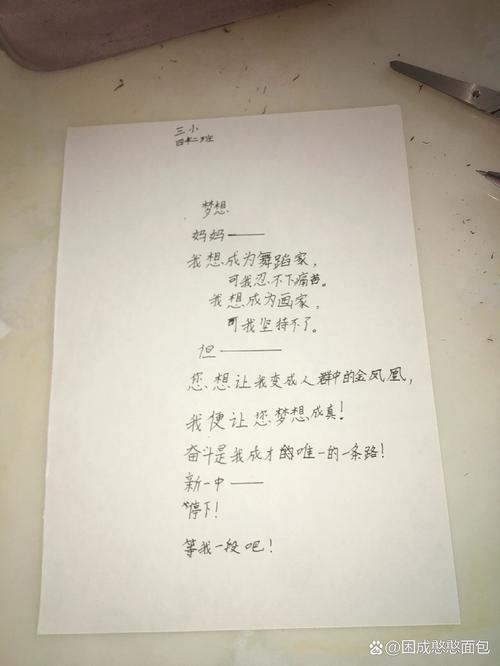 三小
四年二班
梦想
妈妈——
我想成为舞蹈家，
可我忍不下痛苦。
我想成为画家，
可我坚持不了。
但——
您想让我变成人群中的金凤凰，
我便让您梦想成真！
奋斗是我成才的唯一的一条路！
新一中——
停下！
等我一段吧！
@困成憨憨面包